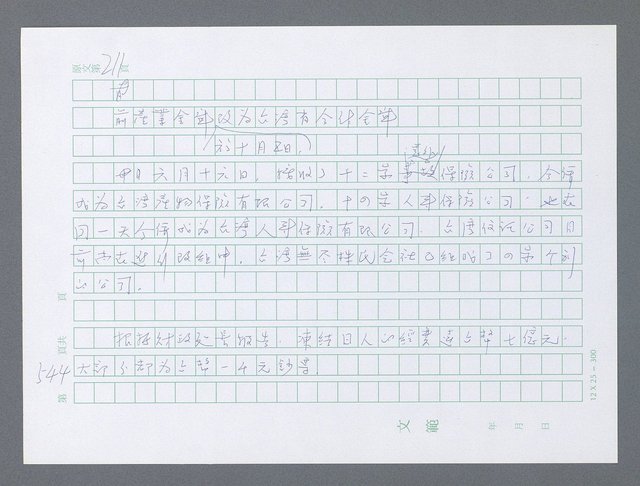 原文第211頁
前
前產業金庫改為台灣省合計金庫
於十月五日.
廿日六月十六日, 接收了十二家產物保險公司, 合併
成為台灣產物保險有限公司. 十四家人壽保險公司, 也在
同一天合併成為台灣人壽保險有限公司. 台灣信託公司目
前尚在進行改組中. 台灣無尽株式会社已組
公司.
根據財政處長報告, 凍結日人的經費達台幣七億元.
大部分都為台幣一千元鈔票.
頁
頁共
544
第
12X25-300
文範
年 月 日